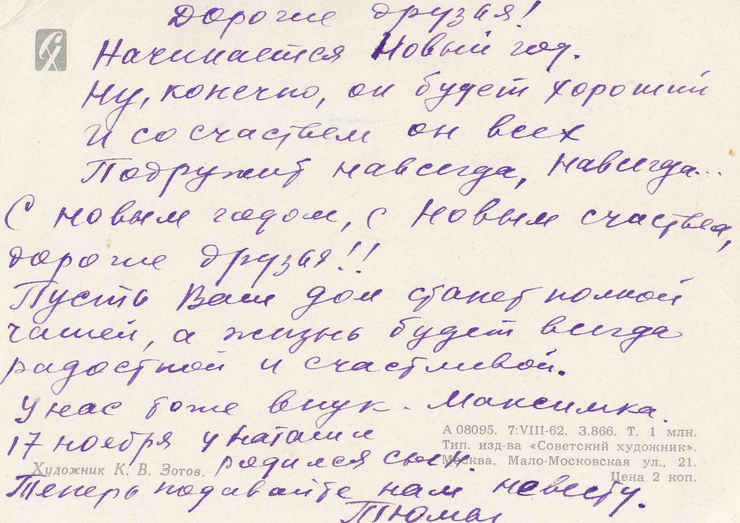 Дорогие друзья!
Начинается Новый год.
Ну, конечно, он будет хороший
и со счастьем он всех
Подружит навсегда, навсегда...
С новым годом, с Новым счастьем,
дорогие друзья!!
Пусть Ваш дом станет полной
чашей, а жизнь будет всегда
радостной и счастливой.
У нас тоже внук - Максимка.
17 ноября у Наташи
родился сын.
Теперь подавайте нам невесту.
СХ
А 08095. 7:VIII-62. З.866. Т. 1 млн.
Тип. изд-ва «Советский художник».
Москва. Мало-Московская ул., 21.
Цена 2 коп.
Художник К. В. Зотов.